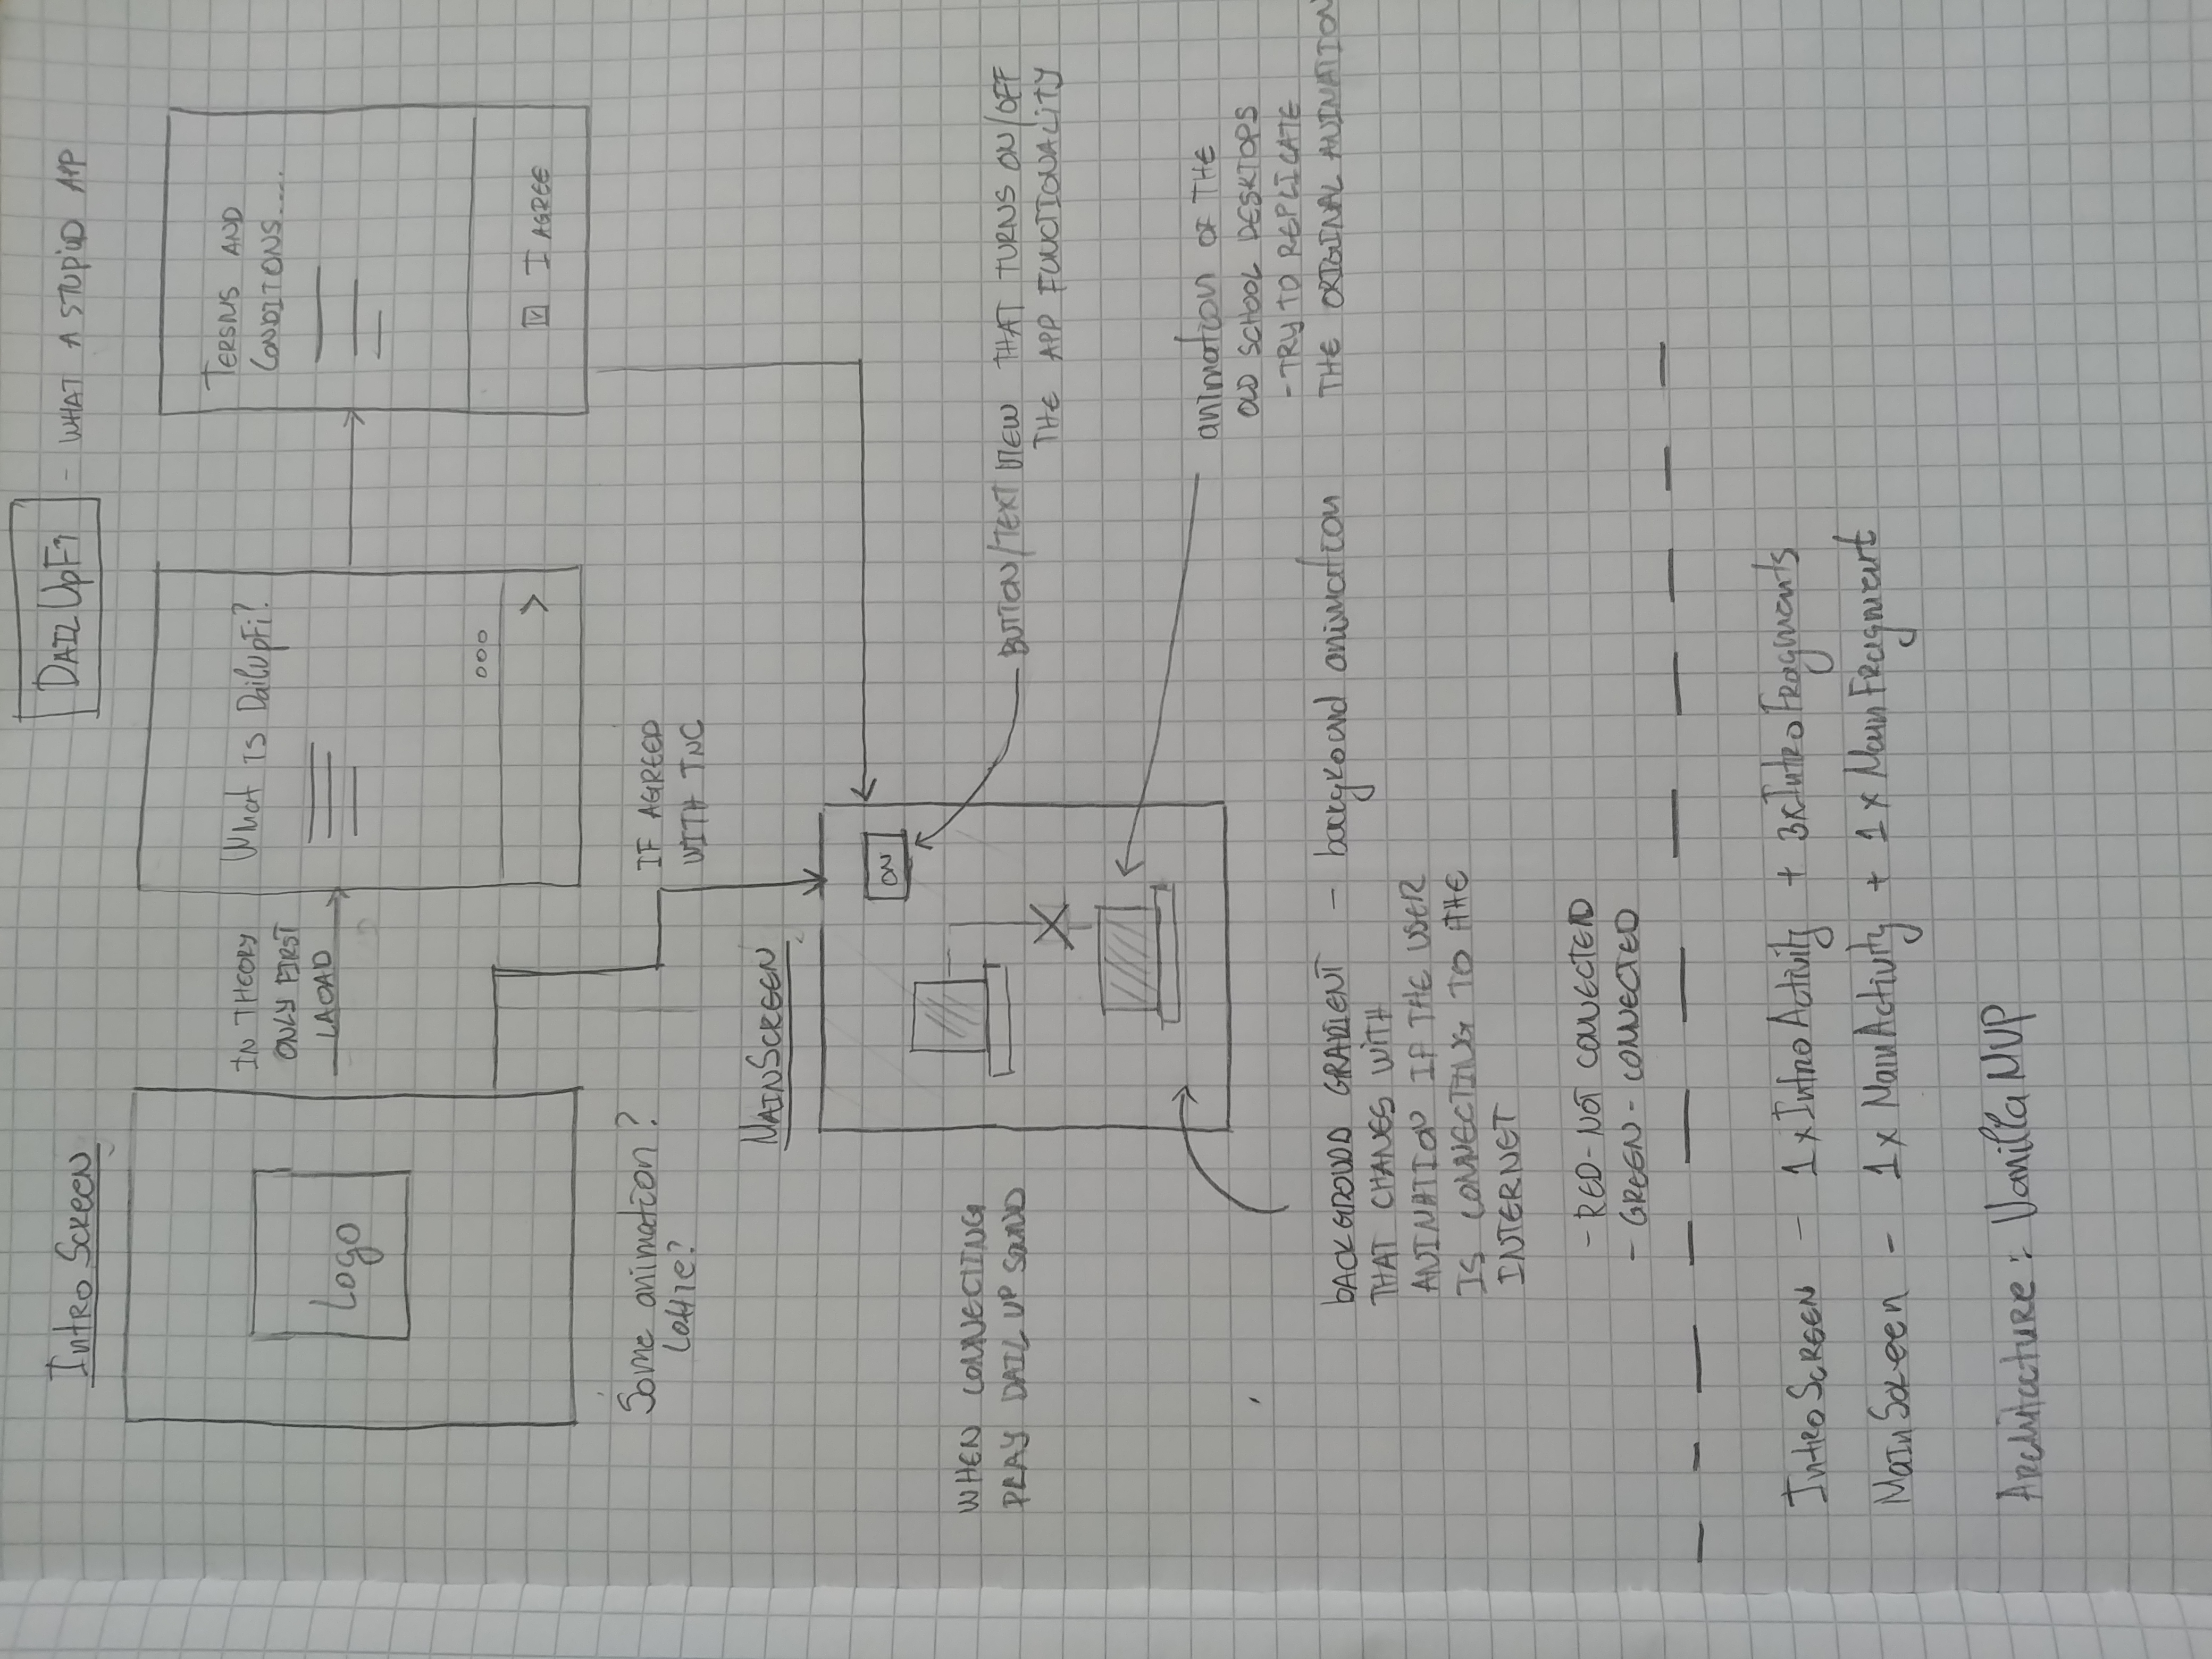 Intro Screen
DAILUpFi - WHAT A STUPID APP
Logo
IN THEORY
ONLY FIRST
LAOAD
What is DailupFi?
ooo
>
TERSMS AND
CONDITONS....
I AGREE
Some animation?
Lottie?
IF AGREED
WITH TNC
MAINSCREEN
ON
WHEN CONNECTING
PLAY DAIL UP SOUND
BUTTON/TEXT VIEW THAT TURNS ON/OFF
THE APP FUNCTIONALITY
animation OF THE
OLD SCHOOL DESKTOPS
- TRY TO REPLICATE
THE ORIGINAL ANIMATION
BACKGROUDD GRADIENT - background animation
THAT CHANES WITH
ANIMATION IF THE USER
IS CONNECTING TO THE
INTERNET
- RED - NOT CONNECTED
- GREEN - CONNECTED
Intro SCREEN - 1x IntroActivity + 3xIntroFragments
Main Screen - 1x MainActivity + 1x MainFragment
Architecture: Vanilla MVP